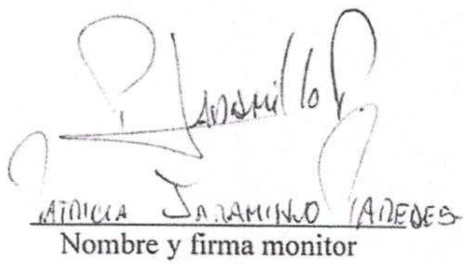 Jaramillo P
Patricia Jaramillo Paredes
Nombre y firma monitor